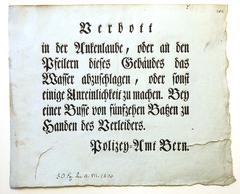 Verbott
in der Ankenlaube, oder an den
Pfeilern dieses Gebäudes das
Wasser abzuschlagen, oder sonst
einige Unreinlichkeit zu machen. Bey
einer Busse von fünfzehen Batzen zu
Handen des Verleiders.
Polizey-Amt Bern.